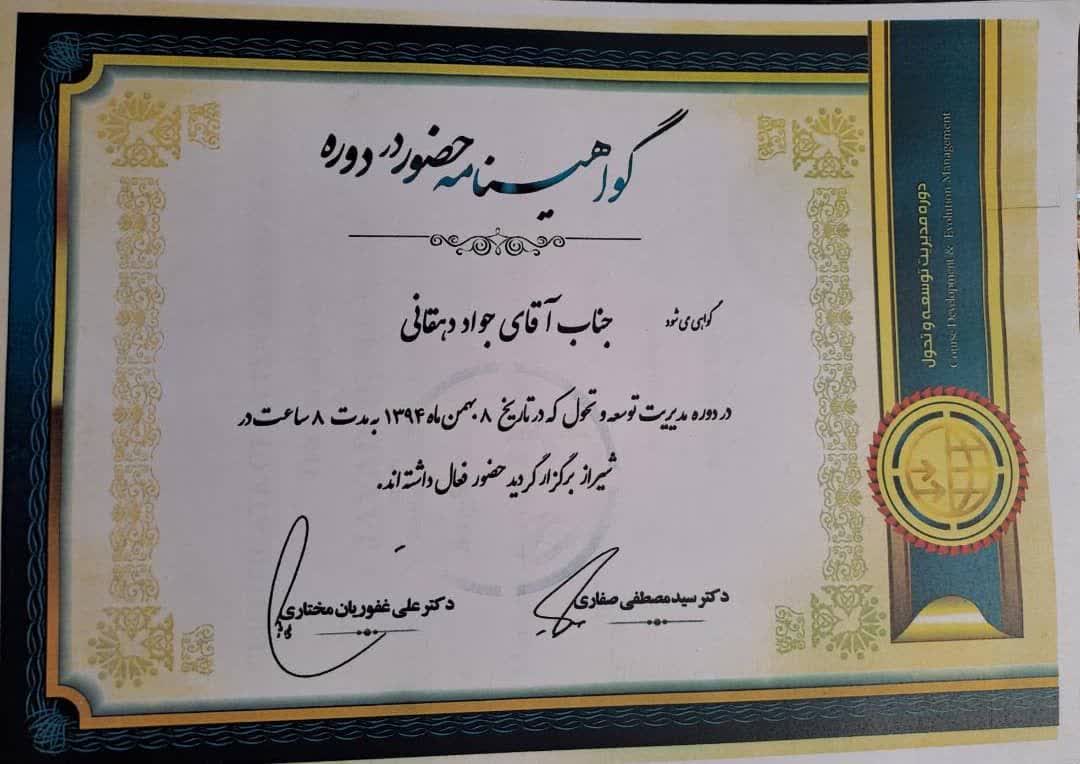 گواهینامه حضور در دوره
گواهی می شود جناب آقای جواد دهقانی
در دوره مدیریت توسعه و تحول که در تاریخ ۸ بهمن ماه ۱۳۹۴ به مدت ۸ ساعت در
شیراز برگزار گردید حضور فعال داشته اند.
دکتر سید مصطفی صفاری
دکتر علی غفوریان مختاری
دوره مدیریت توسعه و تحول
Course Development & Evolution Management